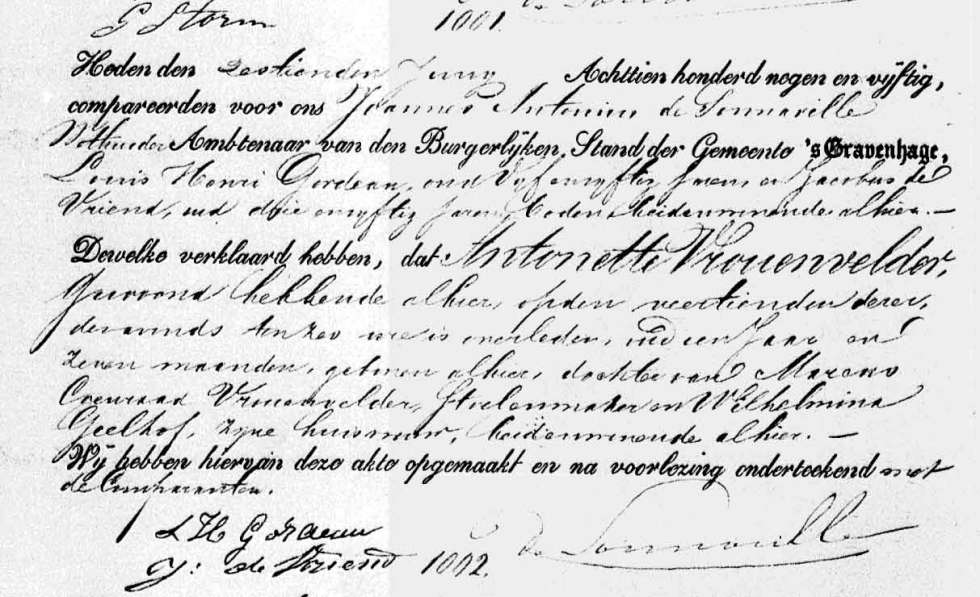 G Storm
1001. de Sonnaville
Heden den zestienden Junij Achttien honderd negen en vijftig,
compareerden voor ons Joannes Antonius de Sonnaville
Wethouder Ambtenaar van den Burgerlijken Stand der Gemeente 's Gravenhage,
Louis Henri Gordeau, oud vijf en vijftig jaren, en Jacobus de
Vriend, oud drie en vijftig jaren, bodens beiden wonende alhier. —
Dewelke verklaard hebben, dat Antonetta Vrouenvelder,
gewoond hebbende alhier, op den veertienden dezer,
des avonds ten zes ure is overleden, oud een jaar en
zeven maanden, geboren alhier, dochter van Marcus
Coenraad Vrouenvelder, Stoelenmaker en Wilhelmina
Geelhof, zijne huisvrouw, beiden wonende alhier. —
Wij hebben hiervan deze akte opgemaakt en na voorlezing onderteekend met
de Comparanten.
L H Gordeau
J: de Vriend 1002. de Sonnaville